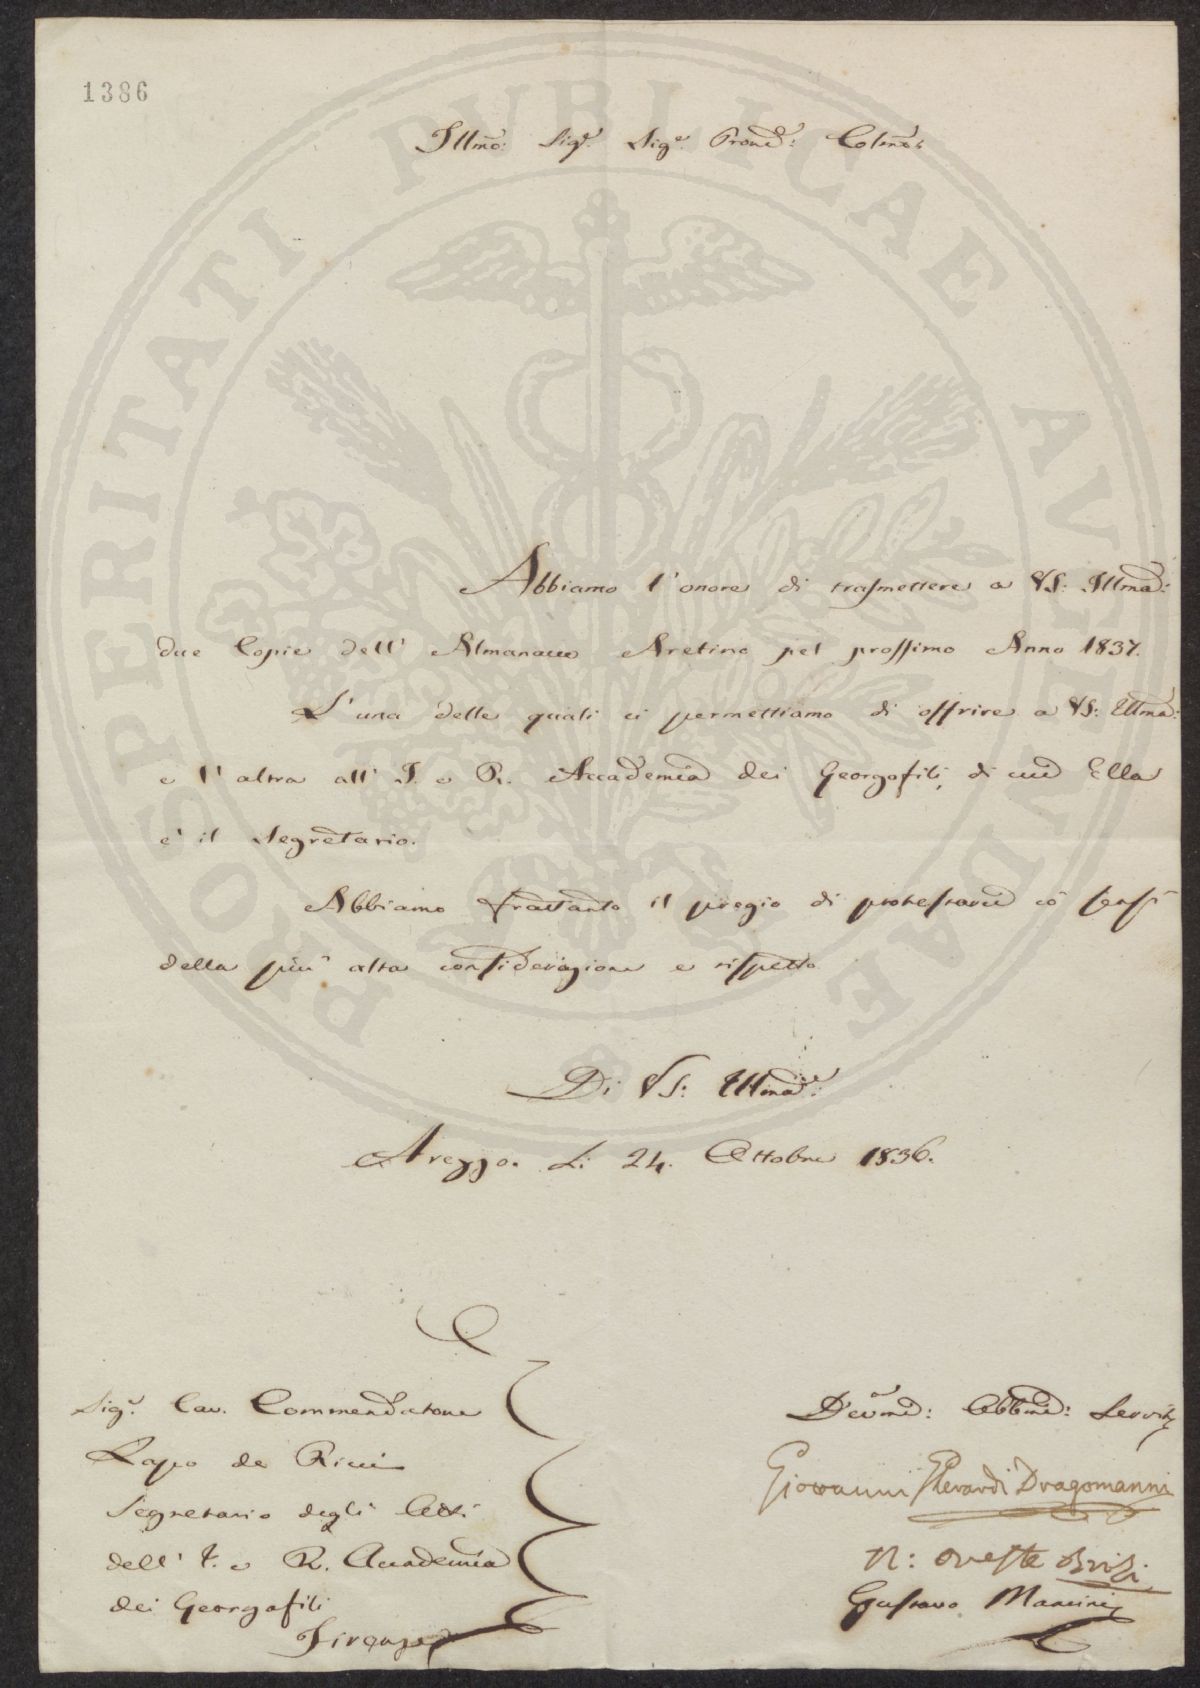 1386
Illmo: Sigr. Sigr. Prone: Colmo:
Abbiamo l'onore di trasmettere a VS: Illma:
due Copie dell' Almanacco Aretino pel prossimo Anno 1837.
L'una delle quali ci permettiamo di offrire a VS: Illma:
e l'altra all' I. e R. Accademia dei Georgofili, di cui Ella
e' il Segretario.
Abbiamo frattanto il pregio di protestarci co' sensi
della più alta considerazione e rispetto
Di VS: Illma:
Arezzo. Li 24. Ottobre 1836.
Sigr. Cav. Commendatore
Lapo de Ricci
Segretario degli Atti
dell' I. e R. Accademia
dei Georgofili
Firenze
Devmi: Obbmi: Servitri
Giovanni Gherardi Dragomanni
N: Oreste Brizi
Gustavo Mancini
PROSPERITATI PUBLICAE AVGENDAE